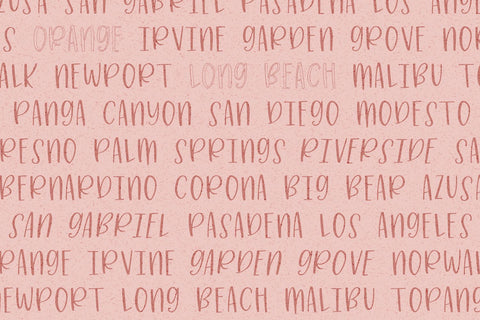 AZUSA SAN GABRIEL PASADENA LOS ANGEL
S ORANGE IRVINE GARDEN GROVE NORW
ALK NEWPORT LONG BEACH MALIBU TO
PANGA CANYON SAN DIEGO MODESTO
RESNO PALM SPRINGS RIVERSIDE SA
BERNARDINO CORONA BIG BEAR AZUSA
SAN GABRIEL PASADENA LOS ANGELES
RANGE IRVINE GARDEN GROVE NORWAL
NEWPORT LONG BEACH MALIBU TOPANG